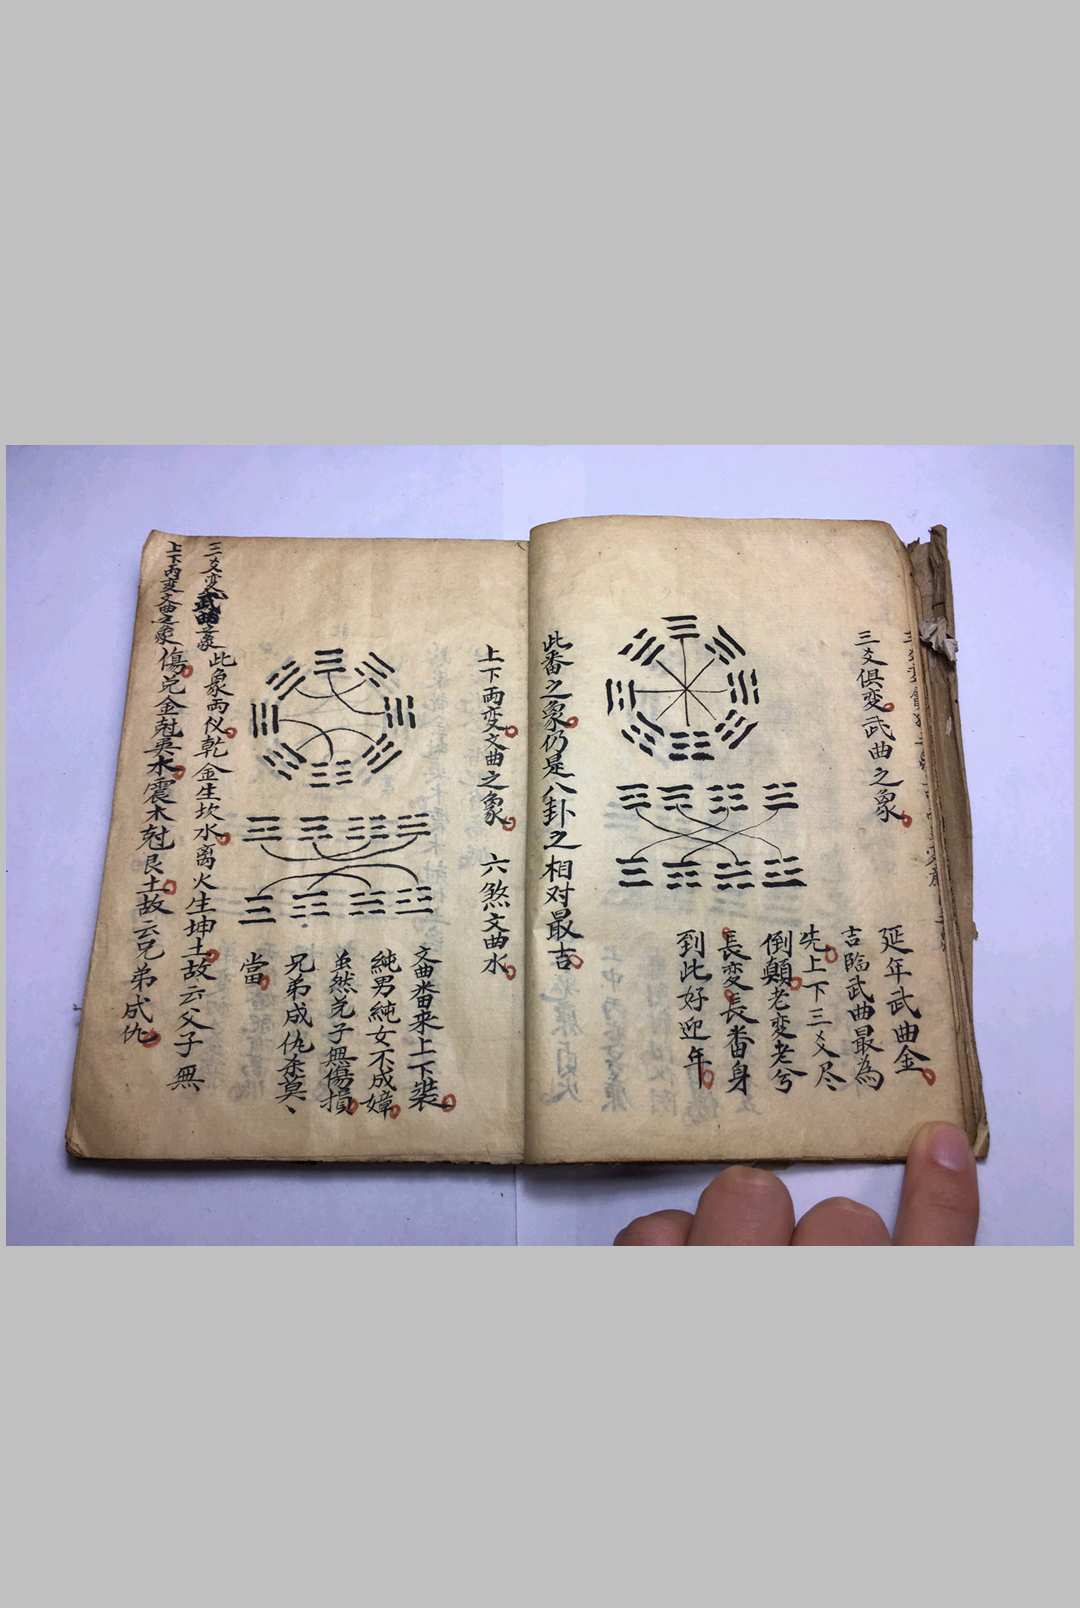 三爻俱变武曲之象
延年武曲金
吉臨武曲最為
先上下三爻尽
倒顛老变老兮
長变長番身
到此好迎年
此番之象仍是八卦之相对最吉
上下两变文曲之象 六煞文曲水
文曲番来上下装
純男純女不成嫜
虽然父子無傷損
兄弟成仇杀莫、
當
三爻变武曲之象
此象两仪乾金生坎水离火生坤土故云父子無
上下两变文曲之象
傷兑金尅巽木震木尅艮土故云兄弟成仇